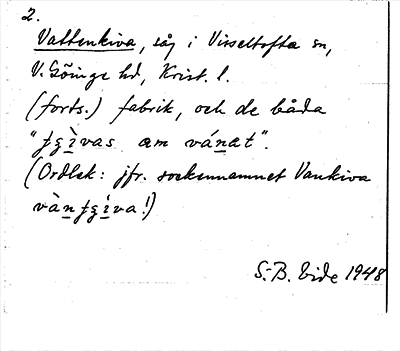 2.
Vattenkiva, såg i Visseltofta sn,
V. Göinge hd, Krist. l.
(forts.) fabrik, och de båda
"ɟʂìvas æm vánæt".
(Ordlek: jfr. sockennamnet Vankiva
vànɟʂìva!)
S. B. Vide 1948